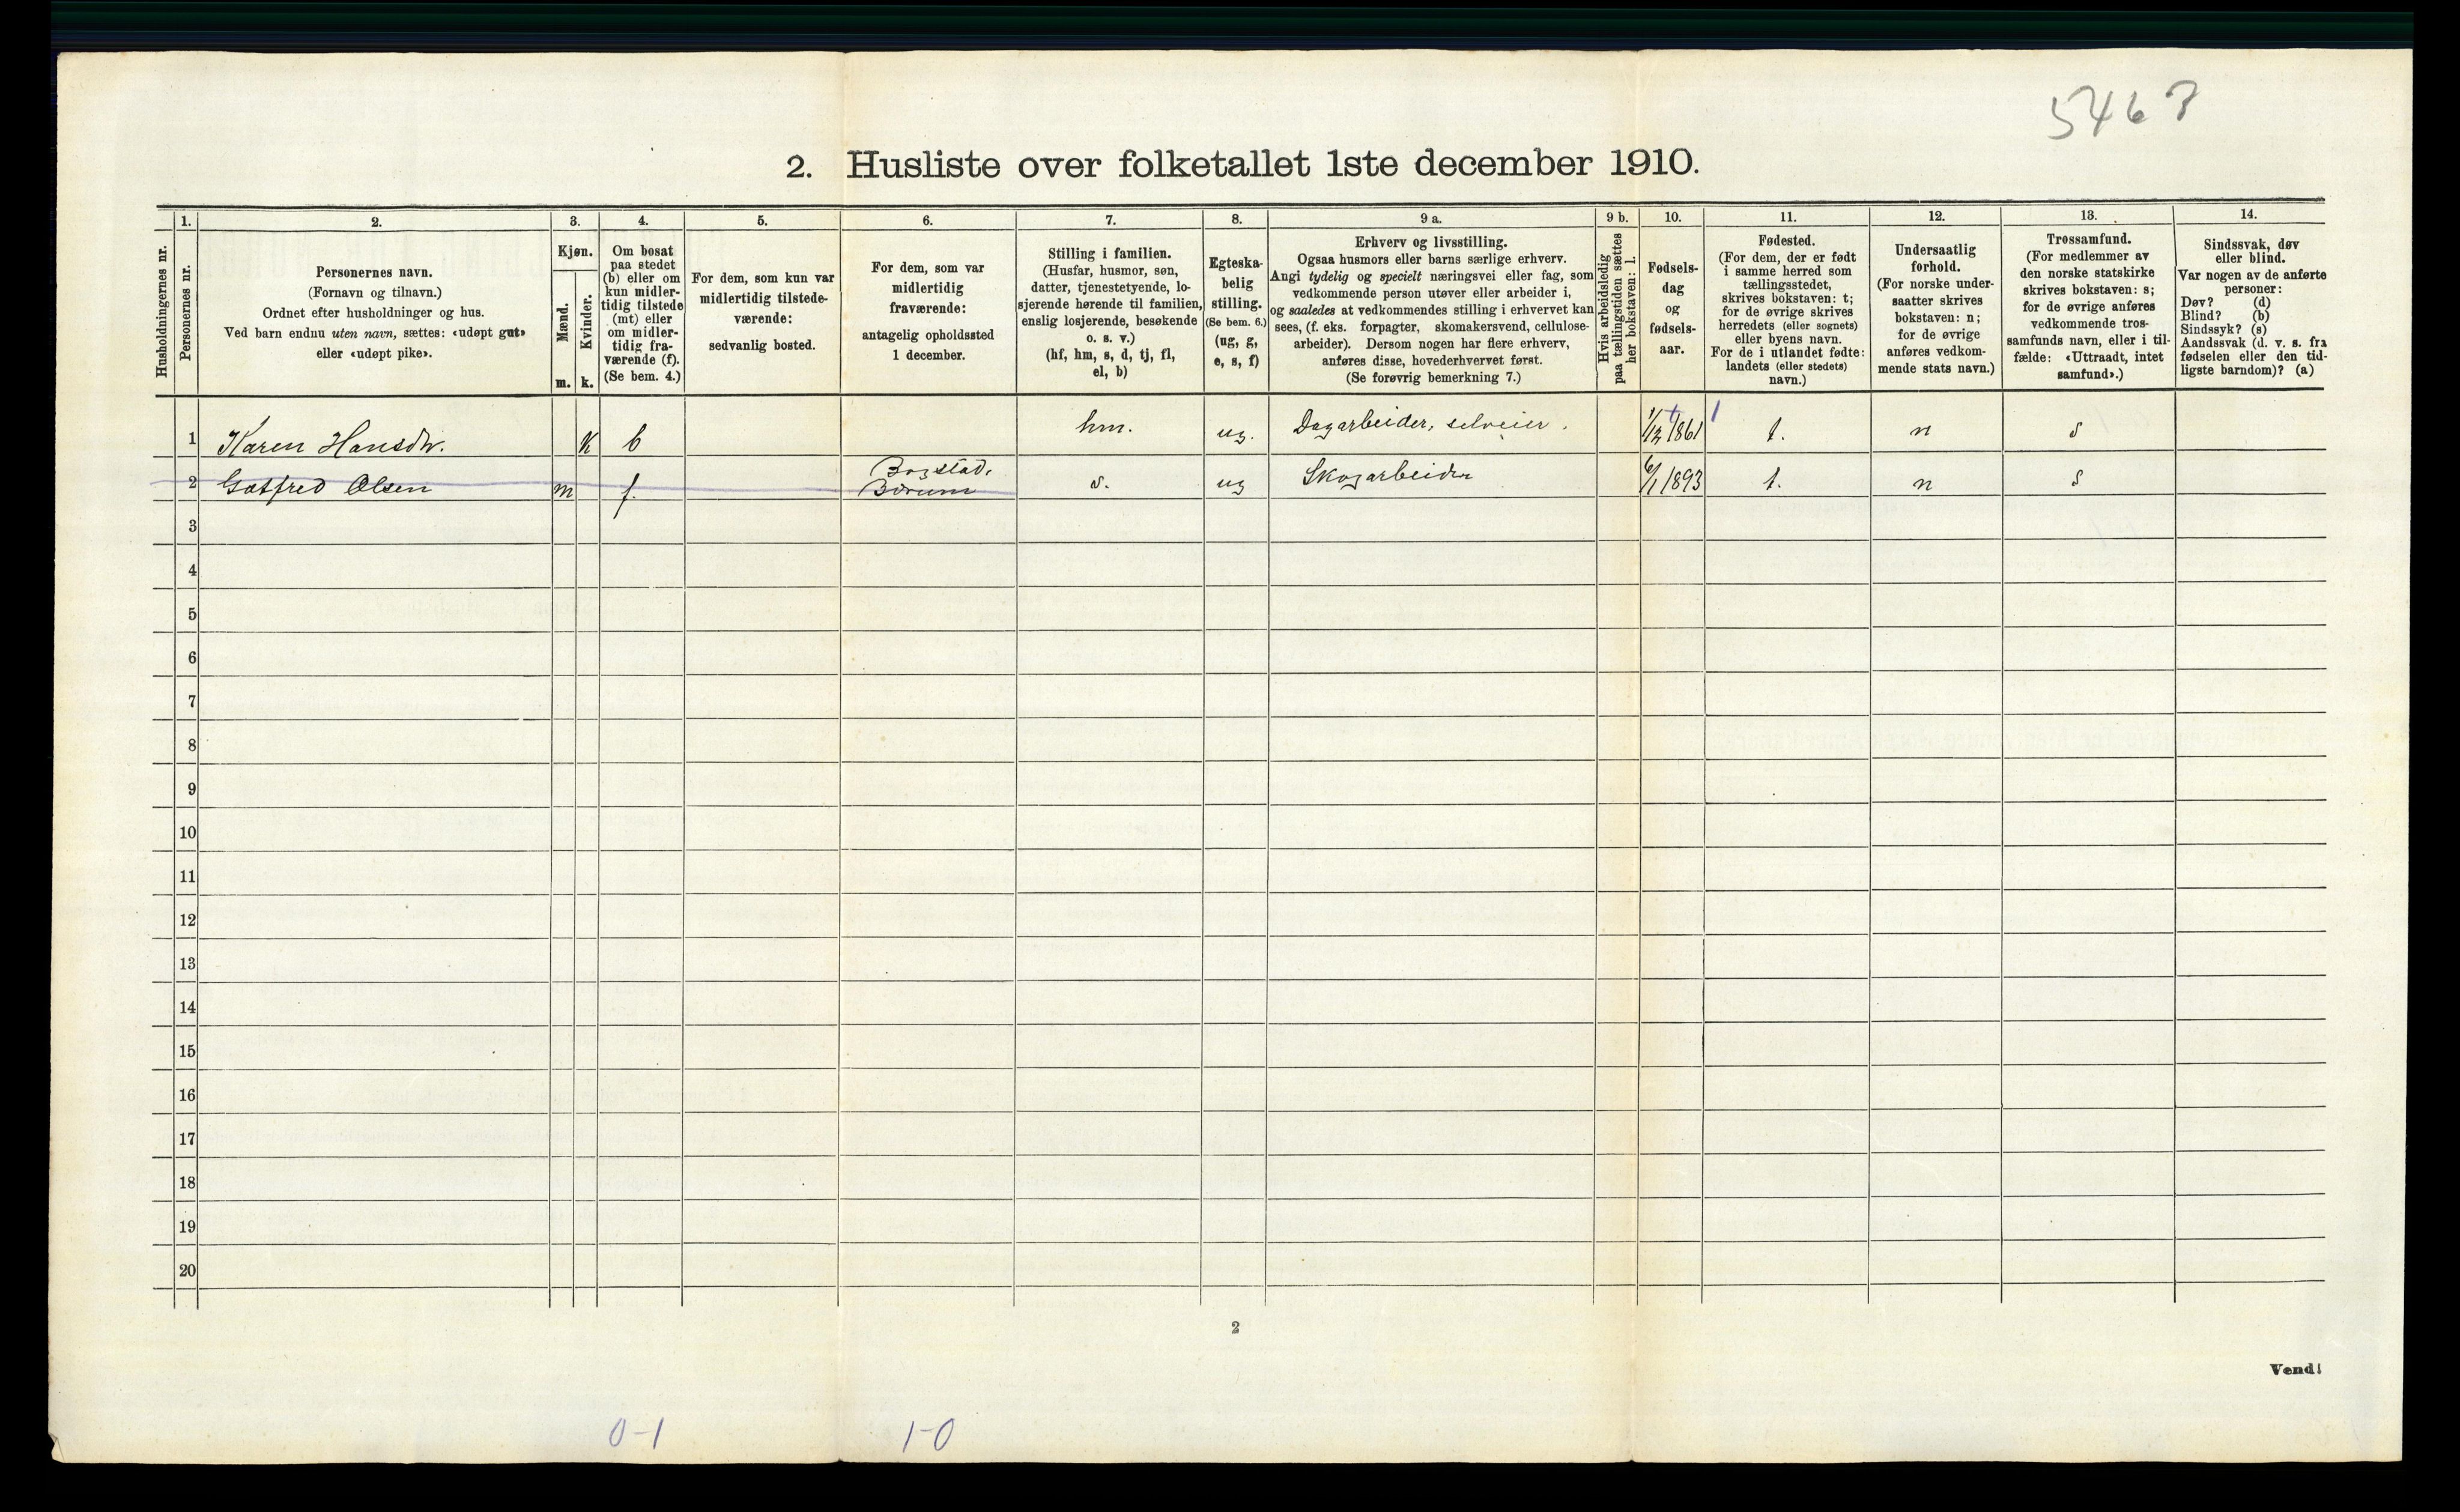 5463
2. Husliste over folketallet 1ste december 1910.
Husholdningernes nr.
1.
Personernes nr.
2.
Personernes navn.
(Fornavn og tilnavn.)
Ordnet efter husholdninger og hus.
Ved barn endnu uten navn, sættes: «udøpt gut»
eller «udøpt pike».
3.
Kjøn.
Mænd.
m.
Kvinder.
k.
4.
Om bosat
paa stedet
(b) eller om
kun midler-
tidig tilstede
(mt) eller
om midler-
tidig fra-
værende (f).
(Se bem. 4.)
5.
For dem, som kun var
midlertidig tilstede-
værende:
sedvanlig bosted.
6.
For dem, som var
midlertidig
fraværende:
antagelig opholdssted
1 december.
7.
Stilling i familien.
(Husfar, husmor, søn,
datter, tjenestetyende, lo-
sjerende hørende til familien,
enslig losjerende, besøkende
o. s. v.)
(hf, hm, s, d, tj, fl,
el, b)
8.
Egteska-
belig
stilling.
(Se bem. 6.)
(ug, g,
e, s, f)
9 a.
Erhverv og livsstilling.
Ogsaa husmors eller barns særlige erhverv.
Angi tydelig og specielt næringsvei eller fag, som
vedkommende person utøver eller arbeider i,
og saaledes at vedkommendes stilling i erhvervet kan
sees, (f. eks. forpagter, skomakersvend, cellulose-
arbeider). Dersom nogen har flere erhverv,
anføres disse, hovederhvervet først.
(Se forøvrig bemerkning 7.)
9 b.
Hvis arbeidsledig
paa tællingstiden sættes
her bokstaven: l.
10.
Fødsels-
dag
og
fødsels-
aar.
11.
Fødested.
(For dem, der er født
i samme herred som
tællingsstedet,
skrives bokstaven: t;
for de øvrige skrives
herredets (eller sognets)
eller byens navn.
For de i utlandet fødte:
landets (eller stedets)
navn.)
12.
Undersaatlig
forhold.
(For norske under-
saatter skrives
bokstaven: n;
for de øvrige
anføres vedkom-
mende stats navn.)
13.
Trossamfund.
(For medlemmer av
den norske statskirke
skrives bokstaven: s;
for de øvrige anføres
vedkommende tros-
samfunds navn, eller i til-
fælde: «Uttraadt, intet
samfund».)
14.
Sindssvak, døv
eller blind.
Var nogen av de anførte
personer:
Døv? (d)
Blind? (b)
Sindssyk? (s)
Aandssvak (d. v. s. fra
fødselen eller den tid-
ligste barndom)? (a)
1 Karen Hansdtr. K b hm. ug. Dagarbeider, selveier. 1/12 1861 t. n s
2 Gotfred Olsen m f. Bogstad, Bærum s. ug Skogarbeider 6/1 1893 t. n s
3
4
5
6
7
8
9
10
11
12
13
14
15
16
17
18
19
20
2
Vend!
0-1 1-0